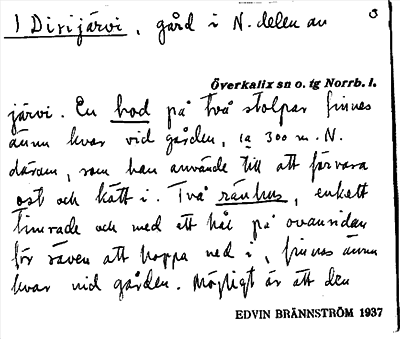 1 Dirijärvi, gård i N. delen av
3
Överkalix sn o. tg Norrb. l.
järvi. En bod på två stolpar finnes
ännu kvar vid gården, ca 300 m. N.
därom, som han använde till att förvara
ost och kött i. Två rävhus, enkelt
timrade och med ett hål på ovansidan
för räven att hoppa ned i, finnes ännu
kvar vid gården. Möjligt är att den
EDVIN BRÄNNSTRÖM 1937